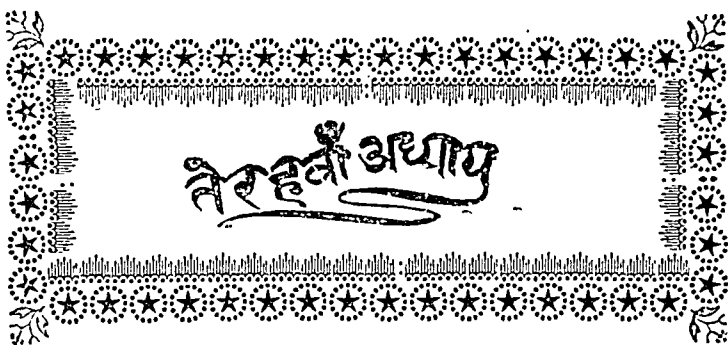 तेरहवाँ अध्याय